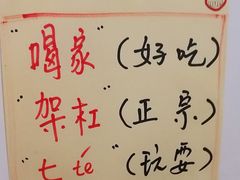 “喝家”(好吃)
“架杠”(正宗)
té”(玩耍)